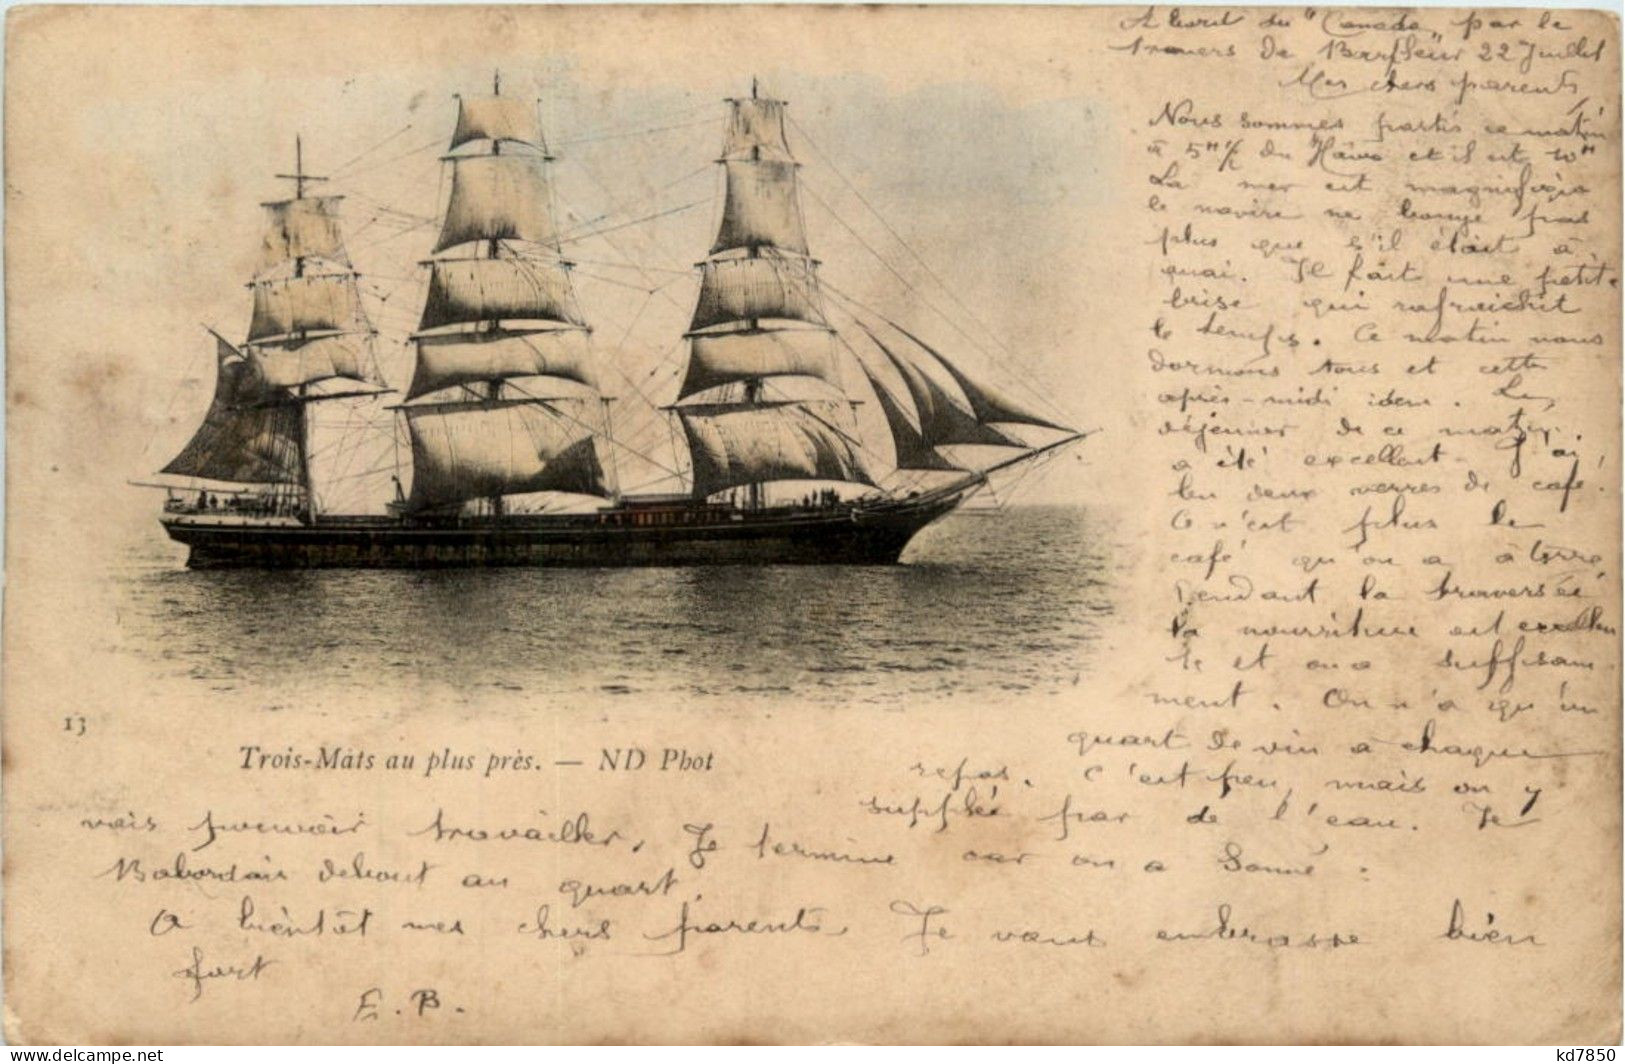 A bord du "Canada" par le
travers de Barfleur 22 Juillet
Mes chers parents,
Nous sommes partis ce matin
à 5" ½ du Hâvre et il est 10"
La mer est magnifique
le navire ne bouge pas
plus que s'il était à
quai. Il fait une petite
brise qui rafraichit
le temps. Ce matin nous
dormons tous et cette
après-midi idem. Le
déjeuner de ce matin
a été excellent. J'ai
bu deux verres de café.
Ce n'est plus le
café qu'on a à terre
Pendant la traversée
la nourriture est excellen
te et on a suffisam
ment. On n'a qu'un
quart de vin à chaque
repas. C'est peu, mais on y
supplée par de l'eau. Je
vais pouvoir travailler. Je termine car on a sonné :
Babordais debout au quart.
A bientôt mes chers parents. Je vous embrasse bien
fort
E. B.
13
Trois-Mâts au plus près. — ND Phot
kd7850